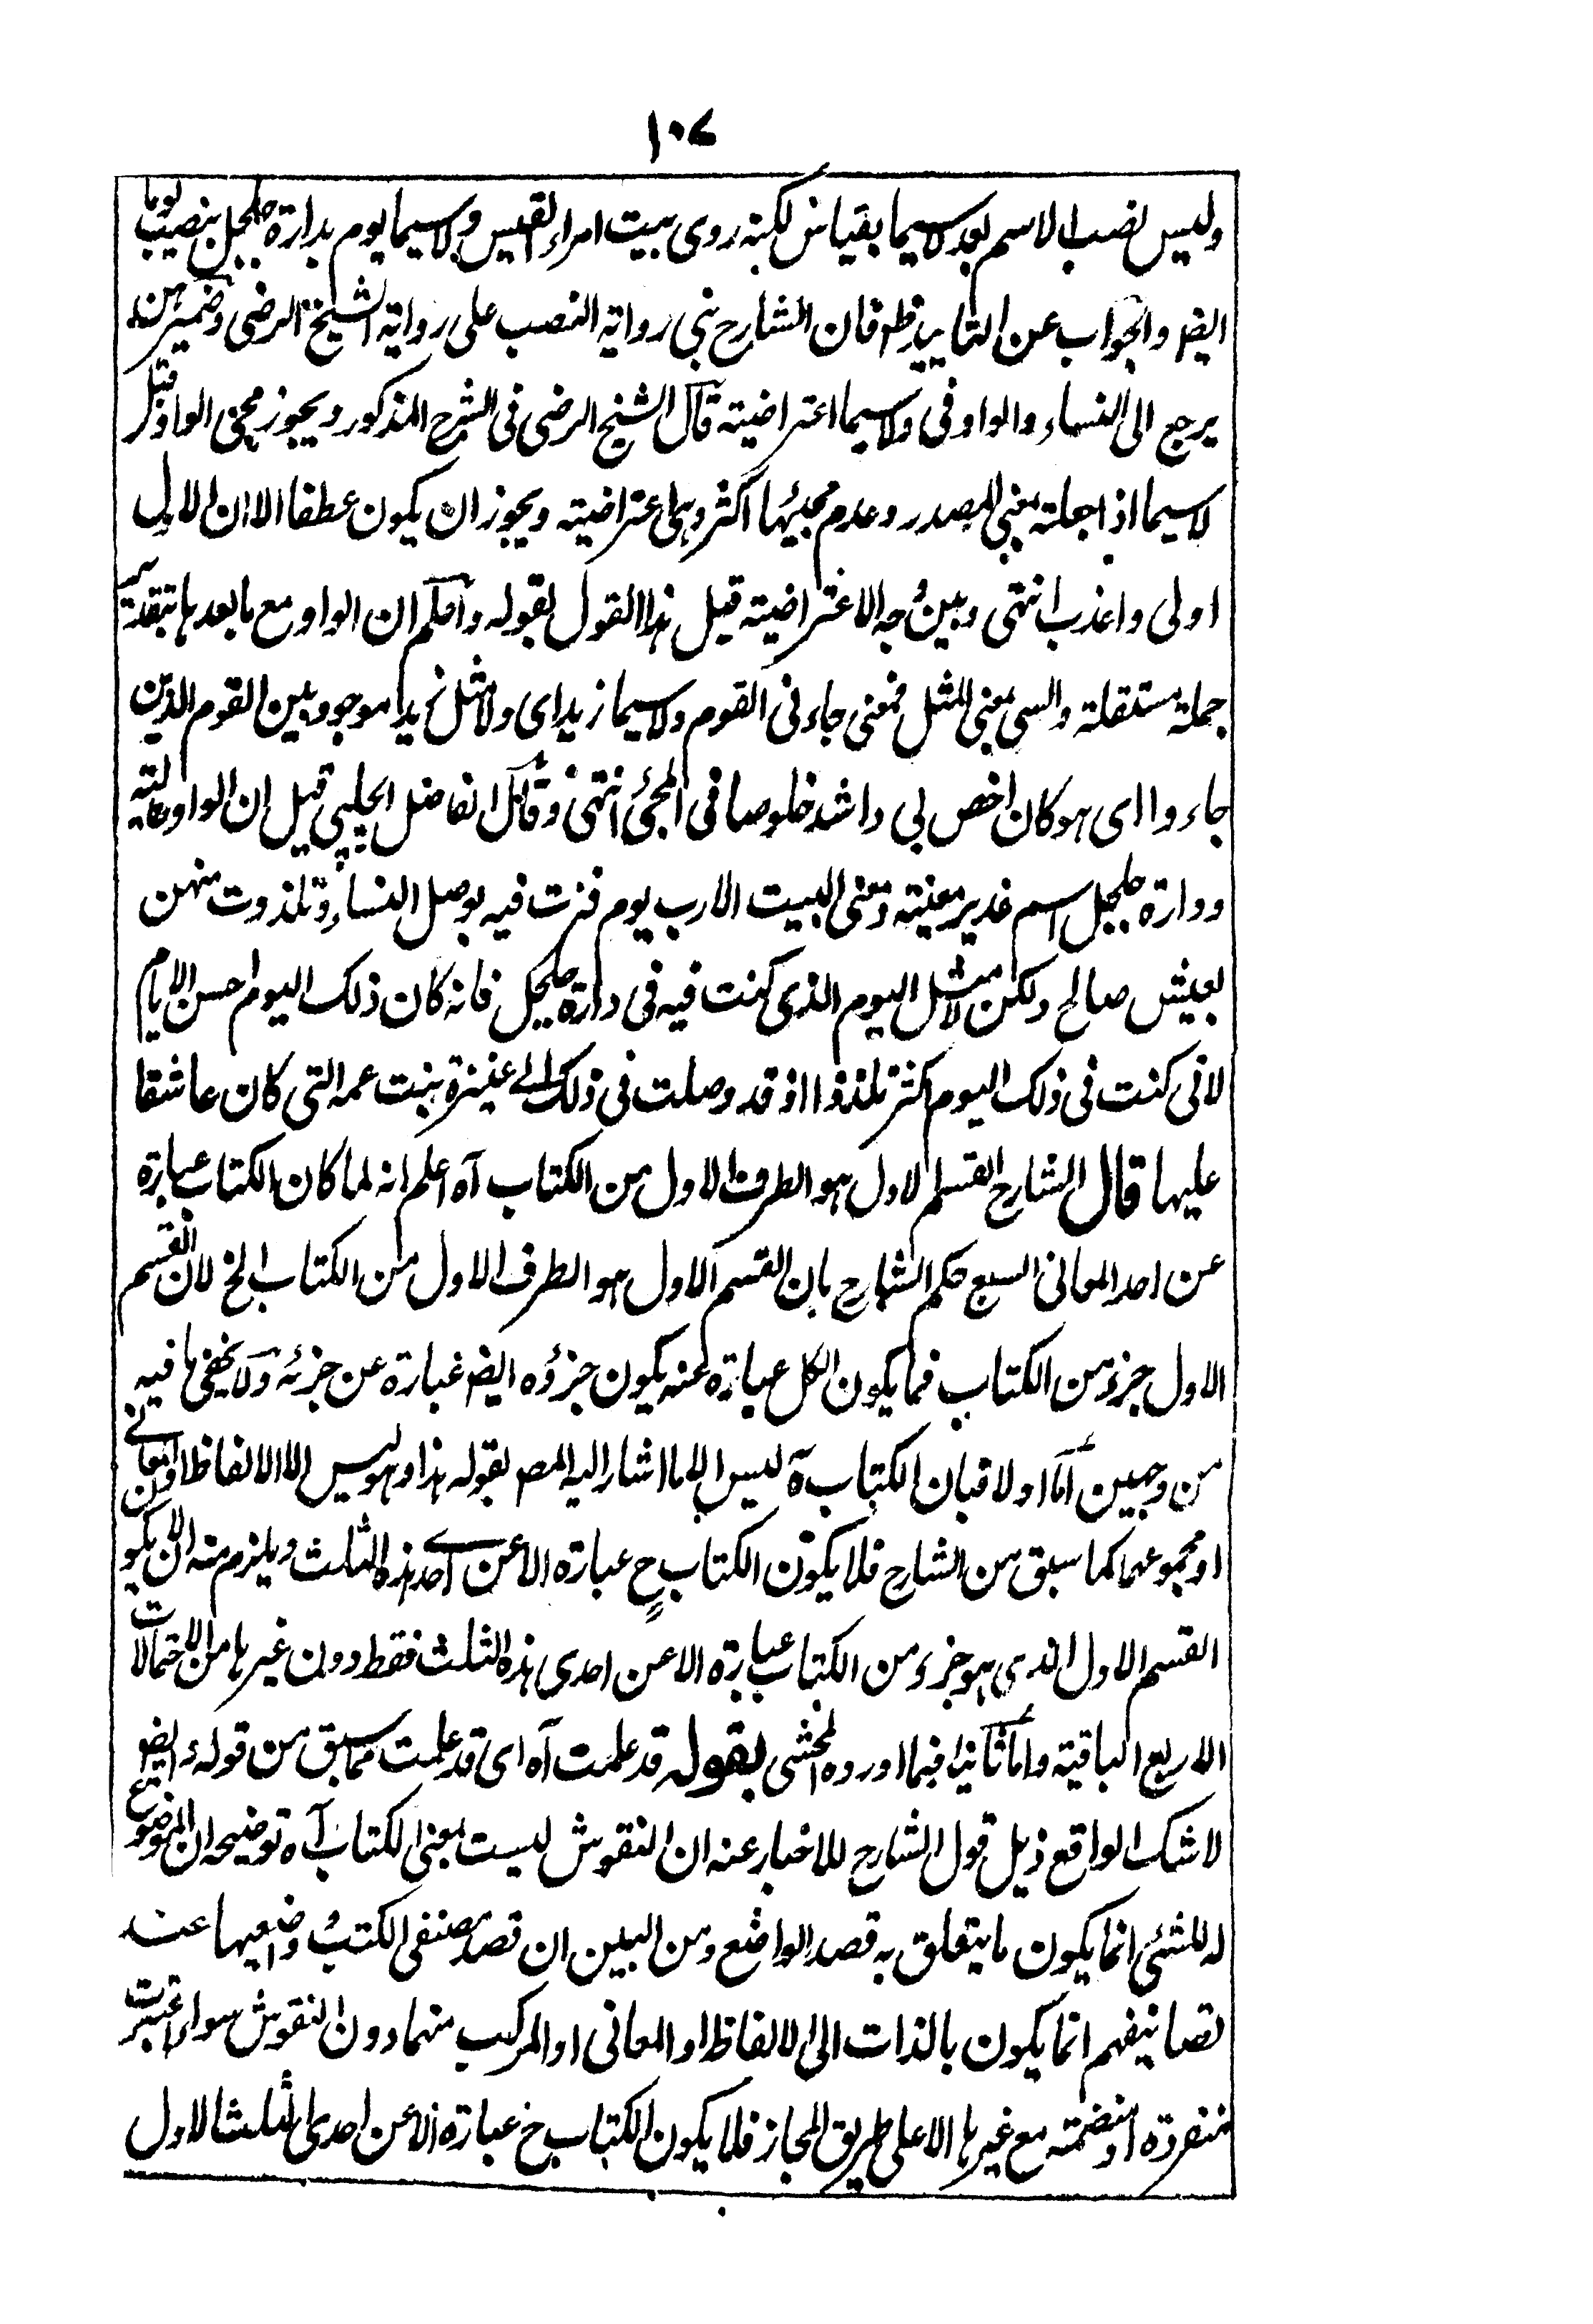 ١٠٧
وليس نصب الاسم بعد لاسيما بقياس لكنه روى بيت امراء القيس ولاسيما يوم بدارة جلجل بنصب يوما
ايضا والجواب عن التأييد فظ فان الشارح بنى رواية النصب على رواية الشيخ الرضى وضمير منهن
يرجع الى النساء والواو فى ولاسيما اعتراضية قال الشيخ الرضى فى الشرح المذكور ويجوز مجئ الواو قبل
لاسيما اذا جعلته بمعنى المصدر وعدم مجيئها اكثر وهى اعتراضية ويجوز ان يكون عطفا الا ان الاول
اولى واعذب انتهى وبين وجه الاعتراضية قبيل هذا القول بقوله واعلم ان الواو مع ما بعدها بتقدير
جملة مستقلة والسى بمعنى المثل فمعنى جاءنى القوم ولاسيما زيدا اى ولا مثل زيد موجود بين القوم الذين
جاءوا اى هو كان اخص بى واشد خلوصا فى المجئ انتهى وقال الفاضل الجلبى قيل ان الواو حالية
ودارة جلجل اسم غدير معينة ومعنى البيت الارب يوم فزت فيه بوصل النساء وتلذذت منهن
بعيش صالح ولكن لا مثل اليوم الذى كنت فيه فى دارة جلجل فانه كان ذلك اليوم احسن الايام
لانى كنت فى ذلك اليوم اكثر تلذذا اذ قد وصلت فى ذلك الى عنيزة بنت عمه التى كان عاشقا
عليها قال الشارح القسم الاول هو الطرف الاول من الكتاب آه اعلم انه لما كان الكتاب عبارة
عن احد المعانى السبع حكم الشارح بان القسم الاول هو الطرف الاول من الكتاب الخ لان القسم
الاول جزء من الكتاب فما يكون الكل عبارة عنه يكون جزؤه ايضا عبارة عن جزئه ولا يخفى ما فيه
من وجهين اما اولا فبان الكتاب آه ليس الا ما اشار اليه المص بقوله هذا وهو ليس الا الالفاظ او المعانى
او مجموعهما كما سبق من الشارح فلا يكون الكتاب ح عبارة الا عن احدى هذه الثلث ويلزم منه ان لا يكون
القسم الاول الذى هو جزء من الكتاب عبارة الا عن احدى هذه الثلث فقط دون غيرها من الاحتمالات
الاربع الباقية واما ثانيا فبما اورده المحشى بقوله قد علمت آه اى قد علمت مما سبق من قوله ايضا
لا شك الواقع ذيل قول الشارح للاخبار عنه ان النقوش ليست بمعنى الكتاب آه توضيحه ان الموضوع
له للشئ انما يكون ما يتعلق به قصد الواضع ومن البين ان قصد مصنفى الكتب وواضعيها عند
تصانيفهم انما يكون بالذات الى الالفاظ او المعانى او المركب منهما دون النقوش سواء اعتبرت
منفردة او منضمة مع غيرها الا على طريق المجاز فلا يكون الكتاب ح عبارة الا عن احدى الثلث الاول